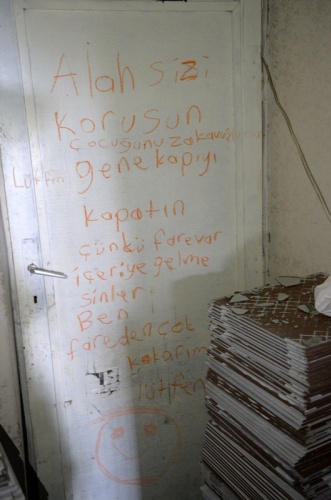 Alah sizi
korusun
çocuğunuza kavuştursun
Lütfin gene kapıyı
kapatın
çünkü farevar
içeriye gelme
sinler.
Ben
fareden çok
kokarım
lütfen